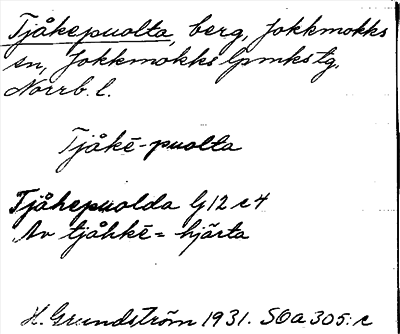 Tjåkepuolta, berg, Jokkmokks
sn, Jokkmokks lpmkstg.
Norrb. l.
Tjåkē-puolta
Tjåkepuolda G12 c4
Av tjåhkē = hjärta
H. Grundström 1931. SOA 305: c